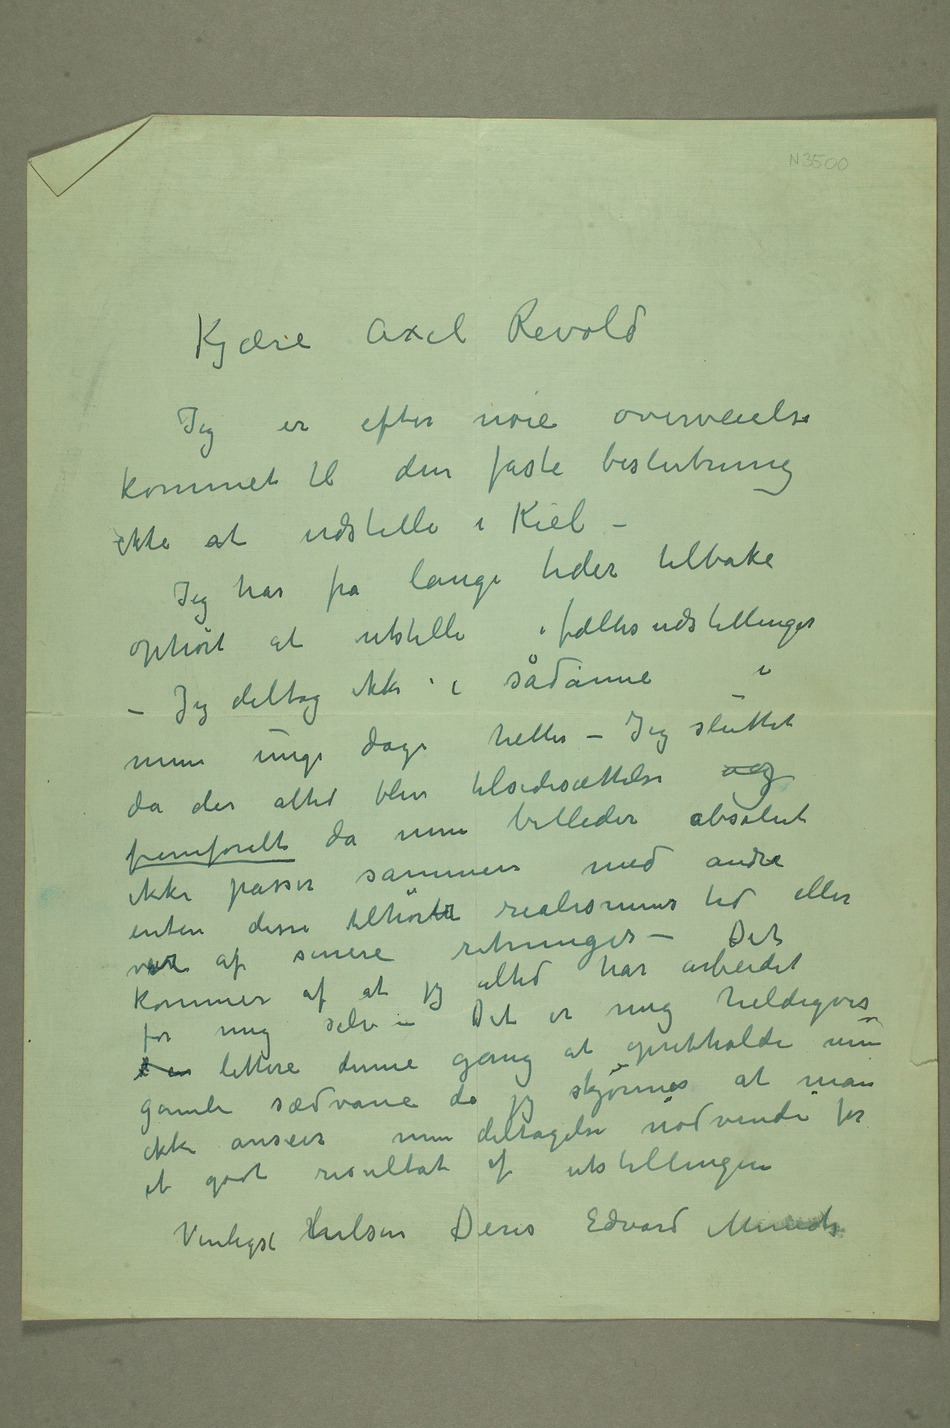 N 3500
Kjære Axel Revold
Jeg er efter nøie overveielse
kommet til den faste beslutning
ikke at udstille i Kiel –
Jeg har fra lange tider tilbake
ophørt at utstille i fælles udstillinger
– Jeg deltog ikke i sådanne i
mine unge dage heller – Jeg sluttet
da der altid blev tilsidesættelse og
fremforalt da mine billeder absolut
ikke passer sammen med andre
enten disse tilhörte realismens tid eller
var af senere retninger – Det
kommer af at jeg altid har arbeidet
for mig selv – Det er mig heldigvis
lettere denne gang at opretholde min
gamle sædvane da jeg skjønner at man
ikke anseer min deltagelse nødvendi for
et godt resultat af utstillingen
Venligst hilsen Deres Edvard Munch